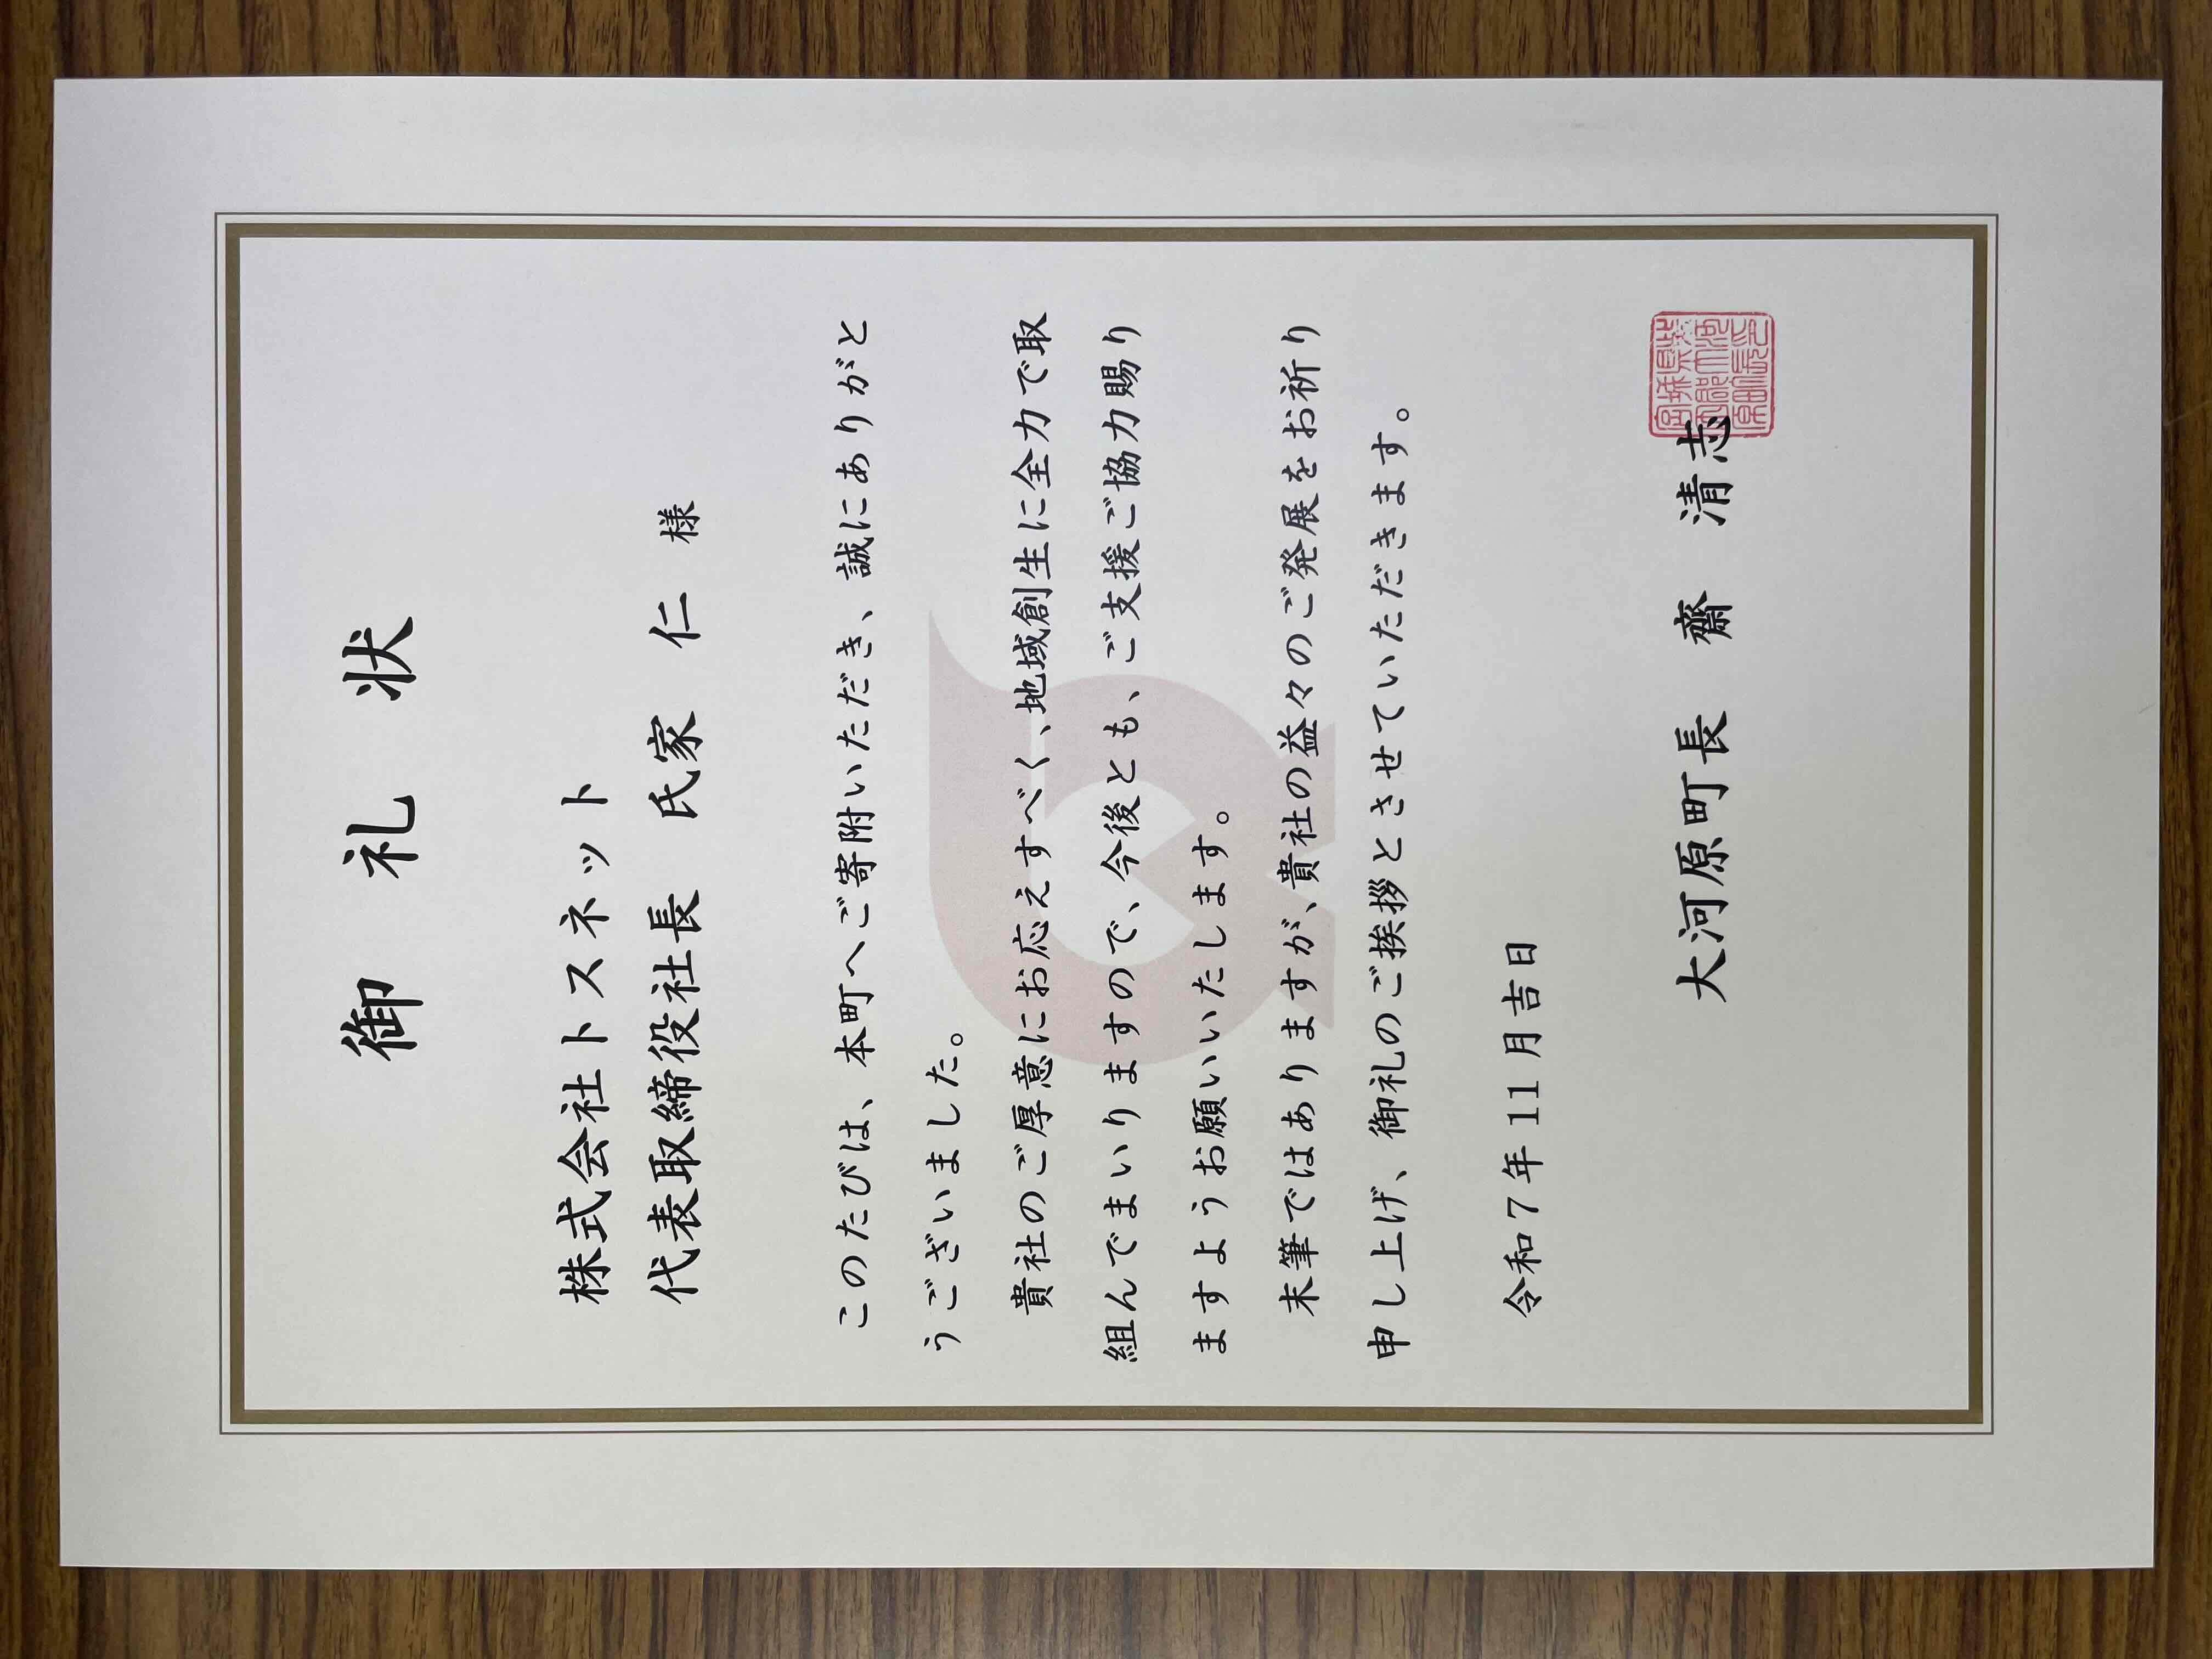 御礼状
株式会社トスネット
代表取締役社長 氏家 仁 様
このたびは、本町へご寄附いただき、誠にありがと
うございました。
貴社のご厚意にお応えすべく、地域創生に全力で取
組んでまいりますので、今後とも、ご支援ご協力賜り
ますようお願いいたします。
末筆ではありますが、貴社の益々のご発展をお祈り
申し上げ、御礼のご挨拶とさせていただきます。
令和7年11月吉日
大河原町長 齋 清志